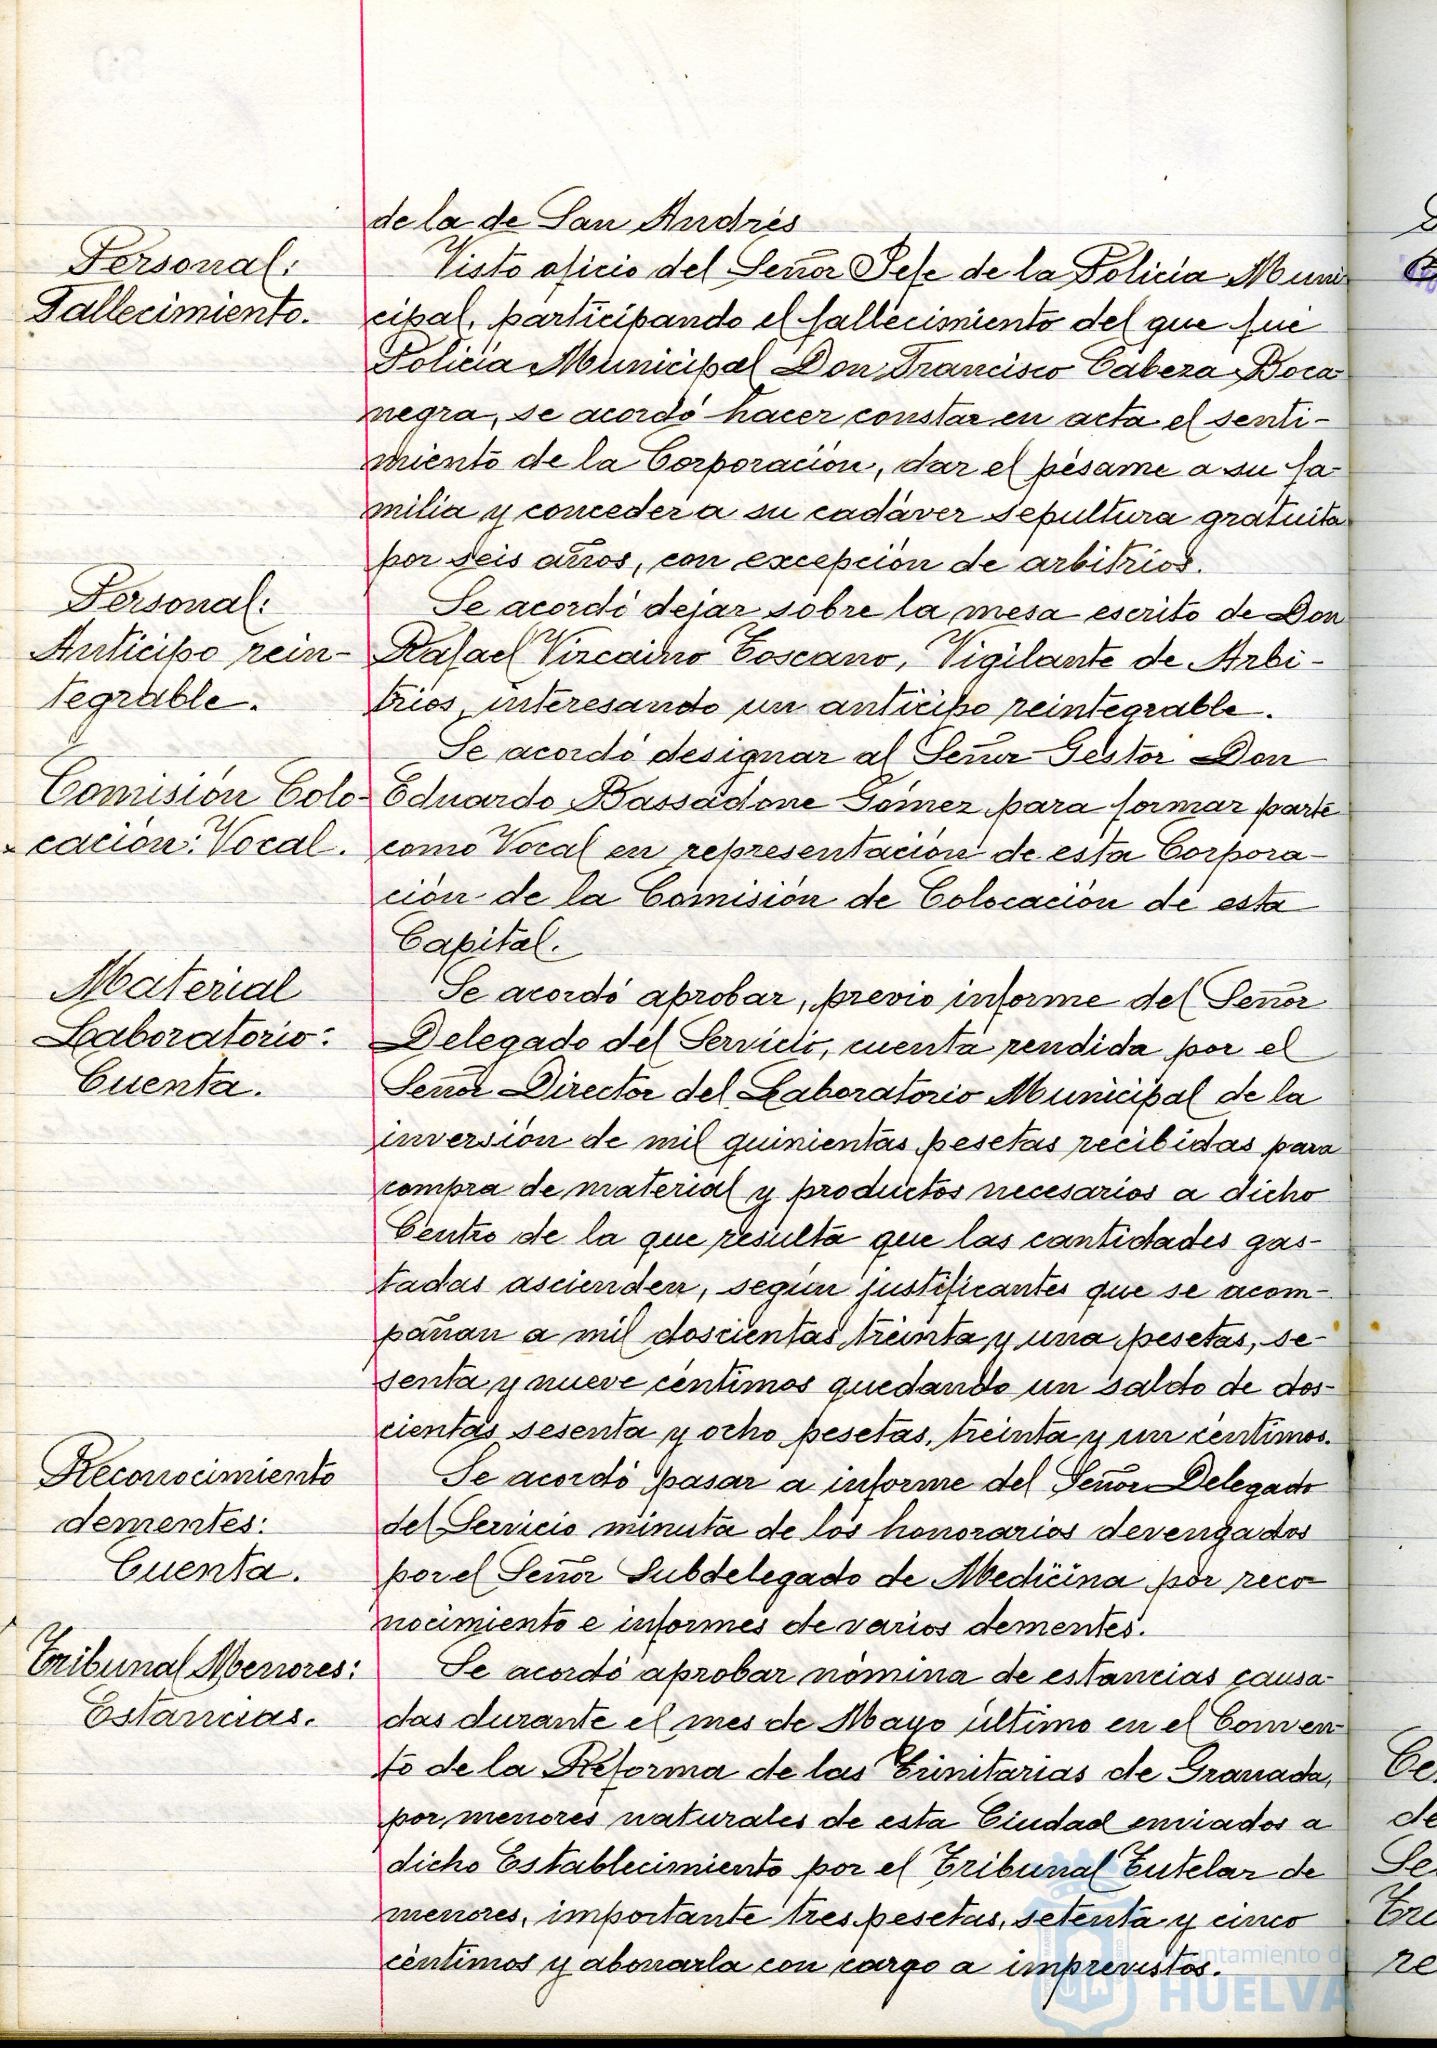 de la de San Andrés
Personal:
Fallecimiento.
Visto oficio del Señor Jefe de la Policía Muni
cipal, participando el fallecimiento del que fué
Policía Municipal Don Francisco Cabeza Boca
negra, se acordó hacer constar en acta el senti-
miento de la Corporación, dar el pésame a su fa-
milia y conceder a su cadáver sepultura gratuita
por seis años, con excepción de arbitrios.
Personal:
Anticipo rein-
tegrable.
Se acordó dejar sobre la mesa escrito de Don
Rafael Vizcaino Toscano, Vigilante de Arbi-
trios, interesando un anticipo reintegrable.
Comisión Colo-
cación: Vocal.
Se acordó designar al Señor Gestor Don
Eduardo Bassadone Gómez para formar parte
como Vocal en representación de esta Corpora-
ción de la Comisión de Colocación de esta
Capital.
Material
Laboratorio:
Cuenta.
Se acordó aprobar, previo informe del Señor
Delegado del Servicio, cuenta rendida por el
Señor Director del Laboratorio Municipal de la
inversión de mil quinientas pesetas recibidas para
compra de material y productos necesarios a dicho
Centro de la que resulta que las cantidades gas-
tadas ascienden, según justificantes que se acom-
pañan a mil doscientas treinta y una pesetas, se-
senta y nueve céntimos quedando un saldo de dos-
cientas sesenta y ocho pesetas, treinta y un céntimos.
Reconocimiento
dementes:
Cuenta.
Se acordó pasar a informe del Señor Delegado
del Servicio minuta de los honorarios devengados
por el Señor Subdelegado de Medicina por reco-
nocimiento e informes de varios dementes.
Tribunal Menores:
Estancias.
Se acordó aprobar nómina de estancias causa-
das durante el mes de Mayo último en el Conven-
to de la Reforma de las Trinitarias de Granada,
por menores naturales de esta Ciudad enviados a
dicho Establecimiento por el Tribunal Tutelar de
menores, importante tres pesetas, setenta y cinco
céntimos y abonarla con cargo a imprevistos.
Ayuntamiento de
HUELVA